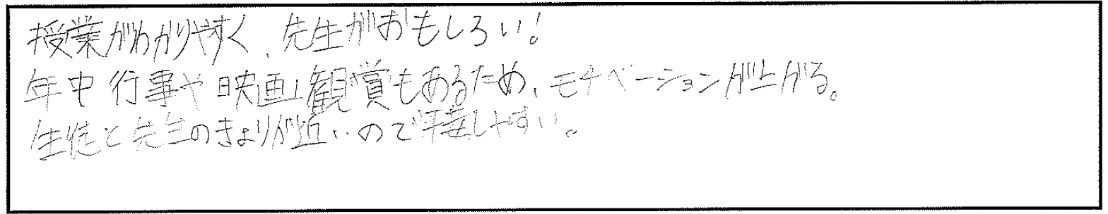 授業がわかりやすく、先生がおもしろい!
年中行事や映画観賞もあるため、モチベーションが上がる。
生徒と先生のきょりが近いので接しやすい。